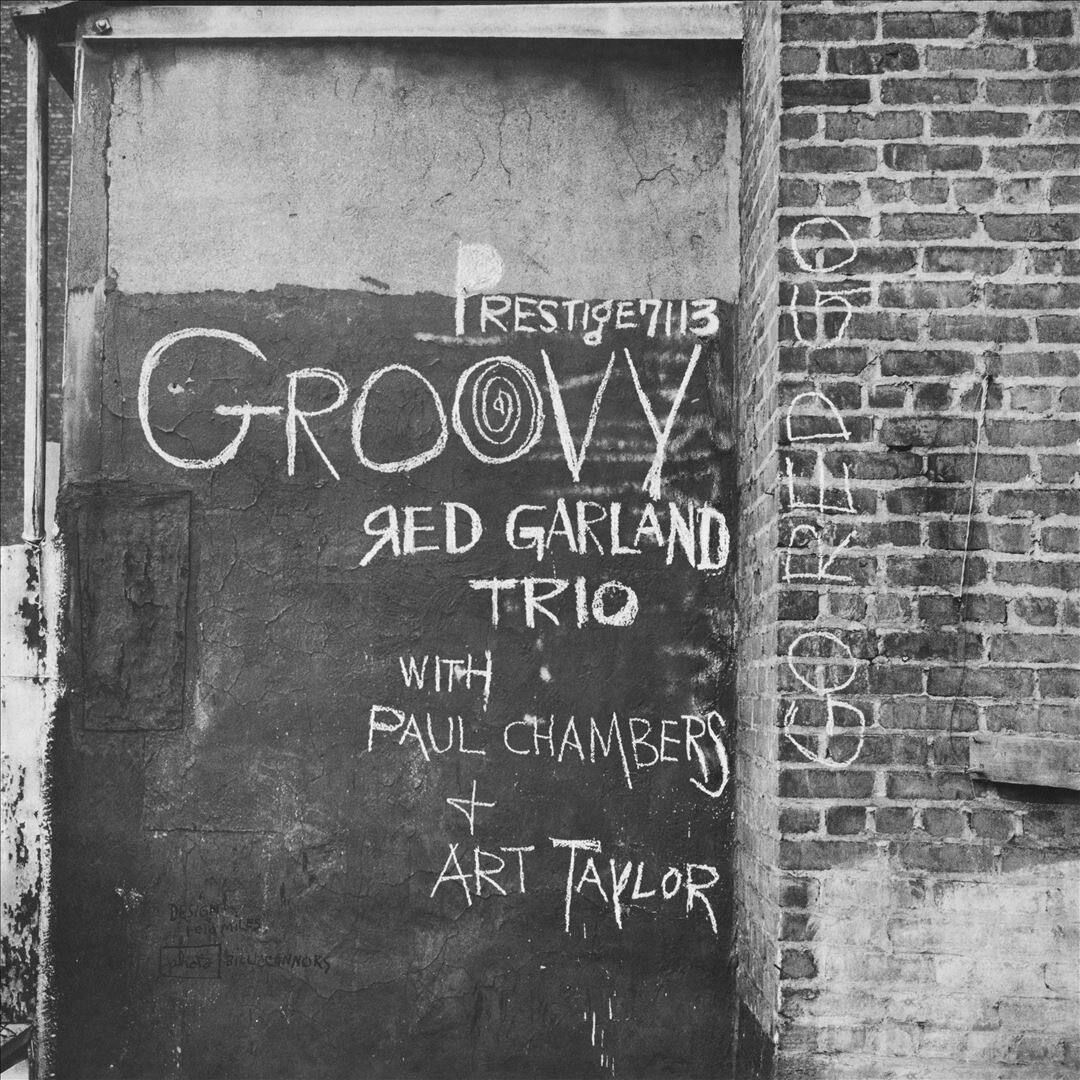 PRESTIGE 7113
GROOVY
RED GARLAND
TRIO
WITH
PAUL CHAMBERS
+
ART TAYLOR
GO RED GO
DESIGN
reid MILES
photo BILL